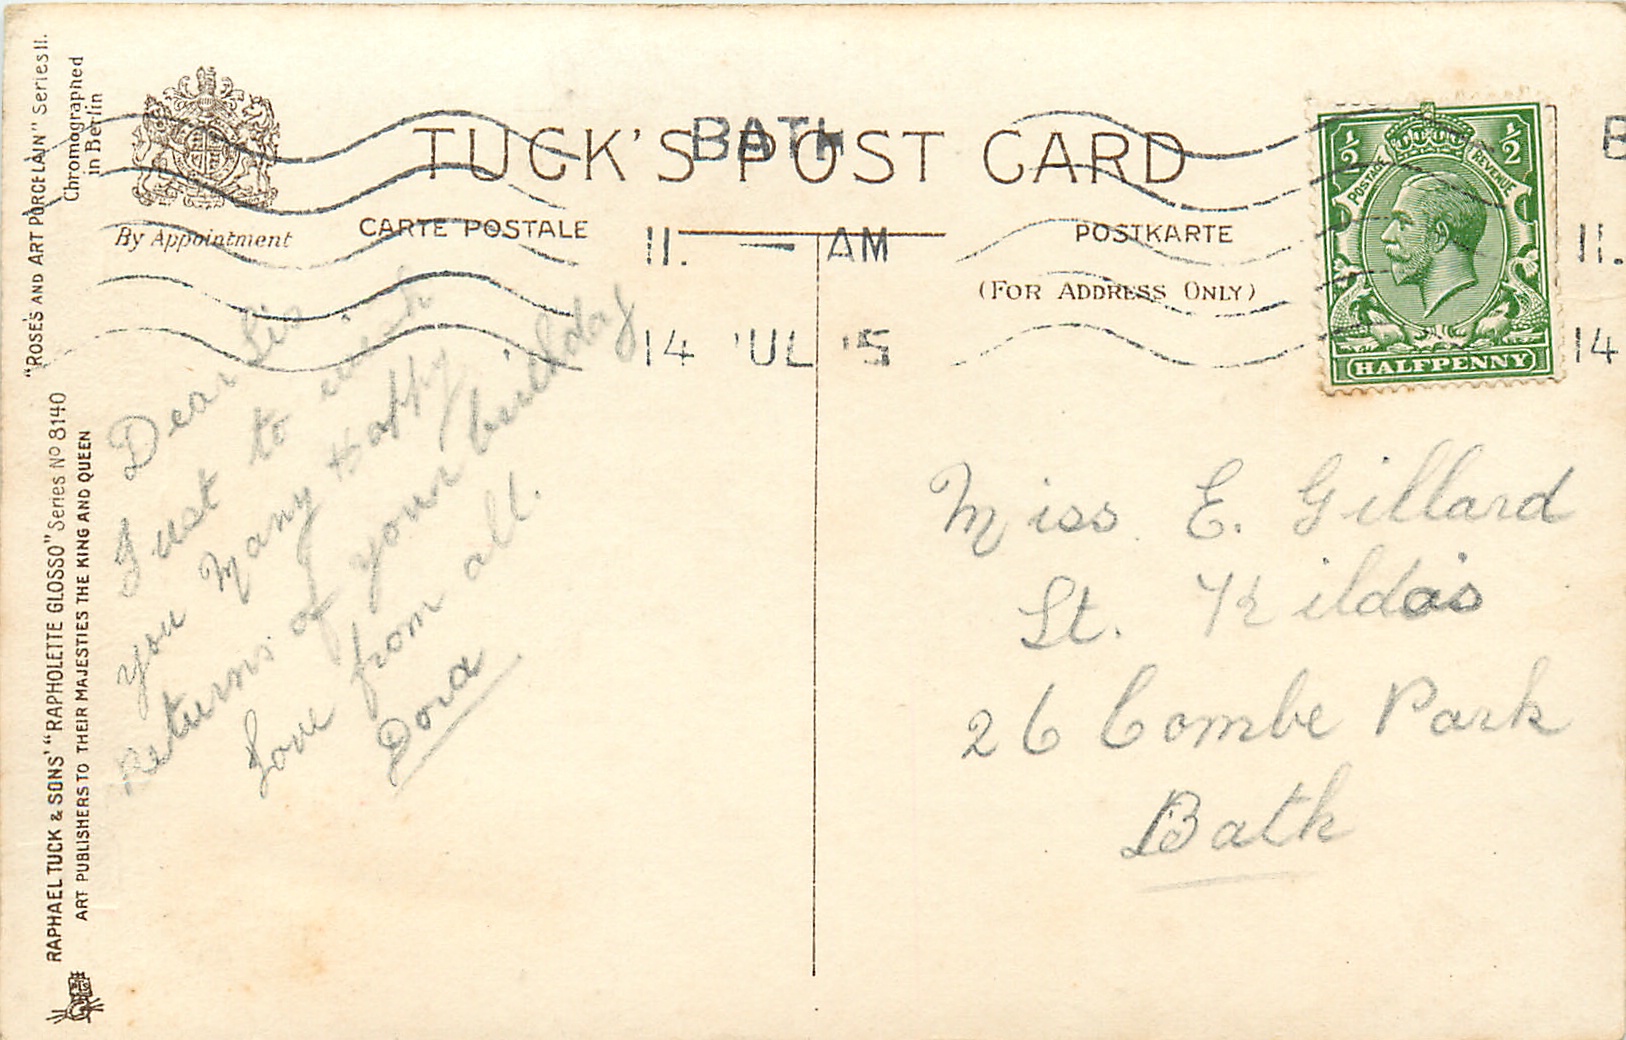 "ROSES AND ART PORCELAIN" Series II.
Chromographed
in Berlin
RAPHAEL TUCK & SONS' "RAPHOLETTE GLOSSO" Series No 8140
ART PUBLISHERS TO THEIR MAJESTIES THE KING AND QUEEN
By Appointment
TUCK'S POST CARD
CARTE POSTALE
POSTKARTE
(FOR ADDRESS ONLY)
BATH
11. — AM
14 'UL '5
B
11.
14
½ ½
POSTAGE REVENUE
HALFPENNY
Dear Sis
Just to wish
you Many Happy
Returns of your birthday
Love from all.
Dora
Miss E. Gillard
St. Kilda's
26 Combe Park
Bath